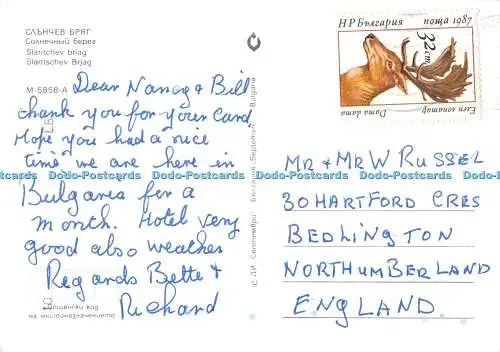 СЛЪНЧЕВ БРЯГ
Солнечный берег
Slantchev briag
Slantschev Brjag
М-5858-А
Dear Nancy & Bill
thank you for your card.
Hope you had a nice
time we are here in
Bulgaria for a
month. Hotel very
good also weather
Regards Bette &
Richard
на местоназначението
НР България поща 1987
32 ст.
Елен лопатар
Dama dama
MR & MR W RUSSEL
30 HARTFORD CRES
BEDLINGTON
NORTHUMBERLAND
ENGLAND
Dodo-Postcards Dodo-Postcards Dodo-Postcards Dodo-Postcards